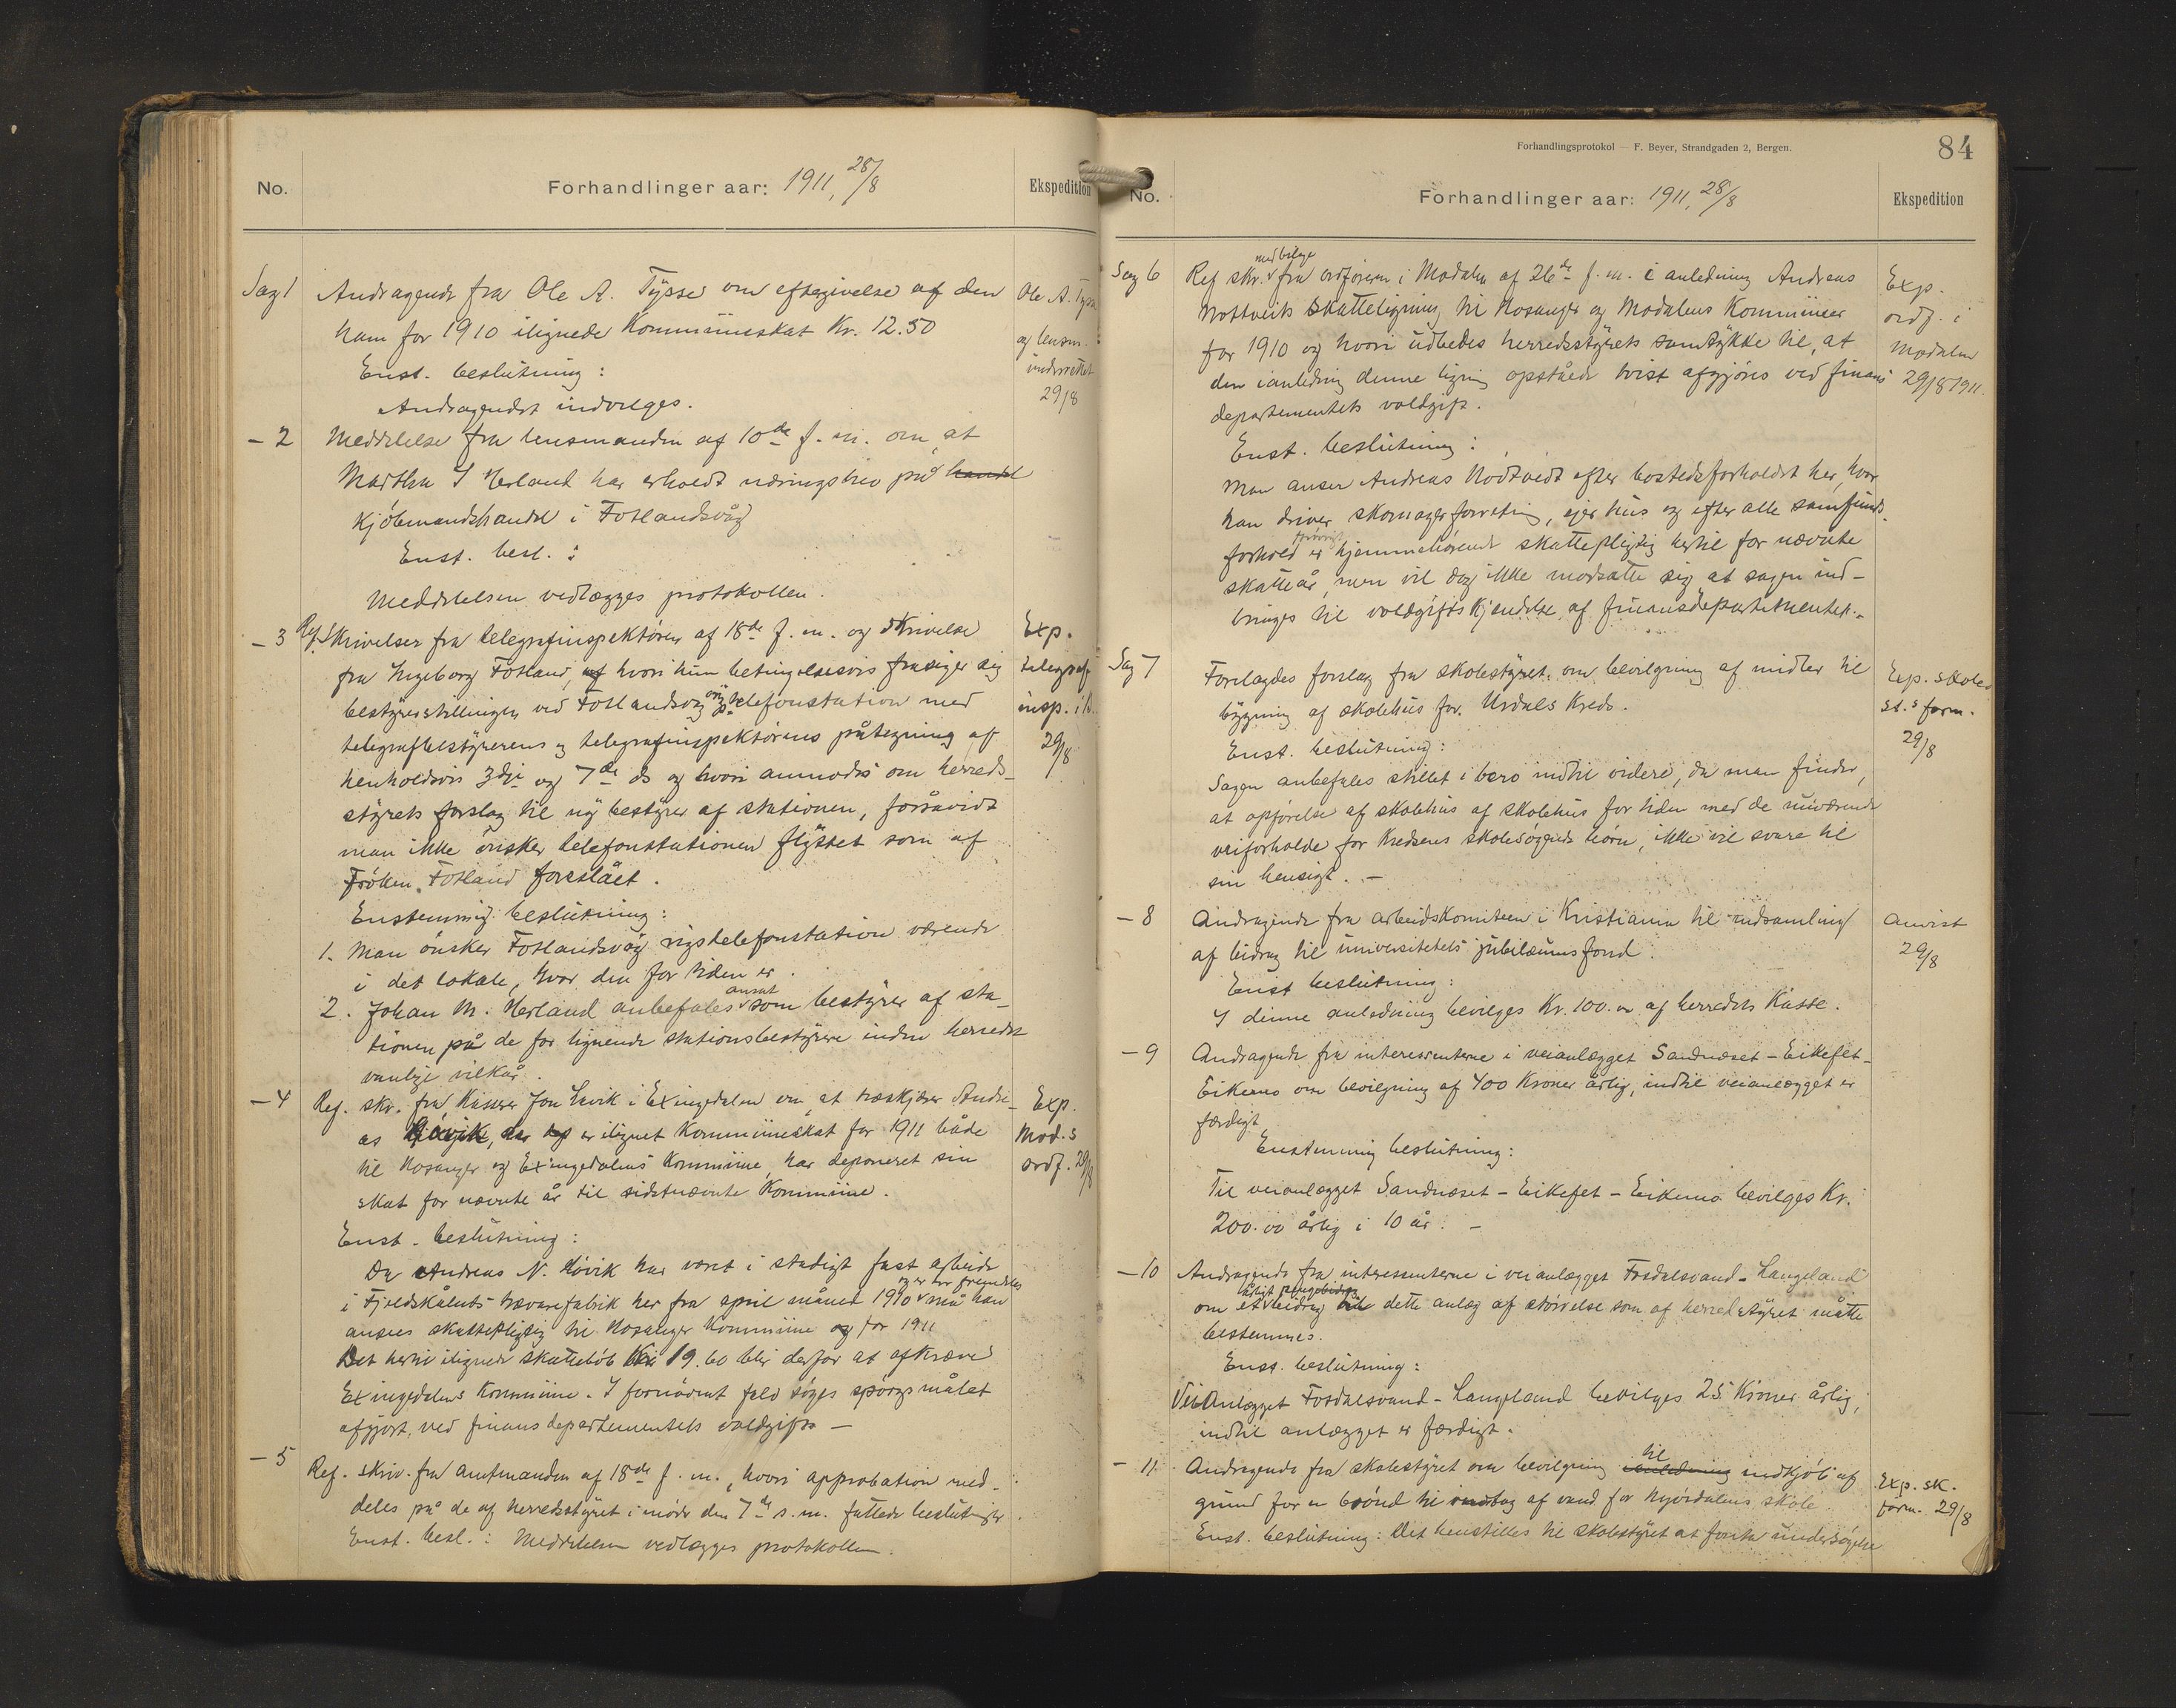 No.
Forhandlinger aar: 1911, 28/8
Ekspedition
Sag 1
Andragende fra Ole A. Tysse om eftergivelse af den
ham for 1910 ilignede Kommuneskat Kr. 12.50
Enst. beslutning:
Andragendet indvilges.
Ole A. Tysse
og lensm.
underrettet
29/8
- 2
Meddelelse fra lensmanden af 10de f. m. om, at
Martha I Herland har erholdt næringsbrev på handel
Kjöbmandshandel i Fotlandsvåg
Enst. besl.:
Meddelelsen vedlægges protokollen.
- 3
Ref. Skrivelser fra telegrafinspektören af 18de f. m. og skrivelse
fra Ingeborg Fotland, af hvori hun betingelsesvis frasiger sig
bestyrerstillingen ved Fotlandsvåg rigstelefonstation med
telegrafbestyrerens og telegrafinspektörens påtegning af
henholdsvis 3dje og 7de ds og hvori anmodes om herreds-
styrets forslag til ny bestyrer af stationen, forsåvidt
man ikke önsker telefonstationen flyttet som af
Fröken Fotland foreslået.
Exp.
telegraf
insp. i B.
29/8
Enstemmig beslutning:
1. Man önsker Fotlandsvåg rigstelefonstation værende
i det lokale, hvor den for tiden er.
2. Johan M. Herland anbefales ansat som bestyrer af sta-
tionen på de for lignende stationsbestyrere inden herredet
vanlige vilkår.
- 4
Ref. skr. fra Kasserer Jon Lavik i Exingedalen om, at træskjærer Andre-
as Hövik, der er ilignet Kommuneskat for 1911 både
til Hosanger og Exingedalens Kommune, har deponeret sin
skat for nævnte år til sidstnævnte Kommune.
Exp.
Mod.s
ordf. 29/8
Enst. beslutning:
Da Andreas N. Hövik har været i stadigt fast arbeide
i Fjeldskålnes trævarefabrik her fra april måned 1910 og er her fremdeles må han
ansees skattepligtig til Hosanger Kommune og for 1911
Det hertil ilignede skattebelöb Kr. 19.60 blir derfor at afkræve
Exingedalens Kommune. I fornödent fald söges spörgsmålet
afgjort ved finansdepartementets voldgift —
- 5
Ref. skriv. fra Amtmanden af 18de f. m., hvori approbation med-
deles på de af herredsstyret i möde den 7de s. m. fattede beslutninger
Enst. besl.: Meddelelsen vedlægges protokollen.
Forhandlingsprotokol — F. Beyer, Strandgaden 2, Bergen.
84
No.
Forhandlinger aar: 1911, 28/8
Ekspedition
Sag 6
Ref skr. med bilage fra ordföreren i Modalen af 26de f. m. i anledning Andreas
Nottveits Skatteligning til Hosanger og Modalens Kommuner
for 1910 og hvori udbedes herredsstyrets samtykke til, at
den i anledning denne ligning opståede tvist afgjöres ved finans
departementets voldgift.
Exp.
ordf. i
Modalen
29/8 1911.
Enst. beslutning:
Man anser Andreas Nodtvedt efter bostedsforholdet her, hvor
han driver skomagerforretning, ejer hus og efter alle samfunds-
forhold er forövrigt hjemmehörende skattepligtig hertil for nævnte
skatteår, men vil dog ikke modsætte sig at sagen ind-
bringes til voldgiftskjendelse af finansdepartementet.-
Sag 7
Forelagdes forslag fra skolestyret om bevilgning af midler til
bygning af skolehus for Urdals Kreds.
Enst. beslutning:
Sagen anbefales stillet i bero indtil videre, da man finder,
at opförelse af skolehus af skolehus for tiden med de nuværende
veiforholde for Kredsens skolesögende börn, ikke vil svare til
sin hensigt. —
Exp. skole
st.s form.
29/8
- 8
Andragende fra arbeidskomiteen i Kristiania til indsamling
af bidrag til universitetets jubilæumsfond.
Enst beslutning:
I denne anledning bevilges Kr. 100.00 af herredets Kasse.
Anvist
29/8
- 9
Andragende fra interessenterne i veianlægget Sandnæset - Eikefet -
Eikemo om bevilgning af 400 Kroner årlig, indtil veianlægget er
færdigt
Enstemmig beslutning:
Til veianlægget Sandnæset - Eikefet - Eikemo bevilges Kr.
200.00 årlig i 10 år. —
- 10
Andragende fra interessenterne i veianlægget Fosdalsvand - Langeland
om et årligt pengebidrag bidrag til dette anlæg af störrelse som af herredstyret måtte
bestemmes.
Enst. beslutning:
Veianlægget Fosdalsvand - Langeland bevilges 25 Kroner årlig,
indtil anlægget er færdigt.
- 11.
Andragende fra skolestyret om bevilgning anledning til indkjöb af
grund for en brönd til indtag af vand for Myördalens skole.
Enst. beslutning: Det henstilles til skolestyret at foreta undersögelse
Exp. sk.
form. 29/8